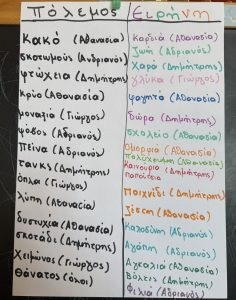 Πόλεμος
κακό (Αθανασία)
σκοτωμούς (Ανδριανός)
φτώχεια (Δημήτρης)
κρύο (Αθανασία)
μοναξιά (Γιώργος)
φόβος (Αδριανός)
Πείνα (Αδριανός)
τανκς (Δημήτρης)
όπλα (Γιώργος)
λύπη (Αθανασία)
δυστυχία (Αθανασία)
σκοτάδι (Δημήτρης)
Χειμώνας (Γιώργος)
Θάνατος (όλοι)
Ειρήνη
Καρδιά (Αθανασία)
Ζωή (Αδριανός)
Χαρά (Δημήτρης)
γλύκα (Γιώργος)
φαγητό (Αθανασία)
δώρα (Δημήτρης)
σχολείο (Αθανασία)
Ομορφιά (Αθανασία)
Πολύχρωμη (Αθανασία)
Καινούρια (Δημήτρης)
παπούτσια
Παιχνίδι (Δημήτρης)
ζέστη (Αθανασία)
Καλοσύνη (Αδριανός)
Αγάπη (Αδριανός)
Αγκαλιά (Αθανασία)
Βόλτες (Δημήτρης)
Φιλιά (Αδριανός)